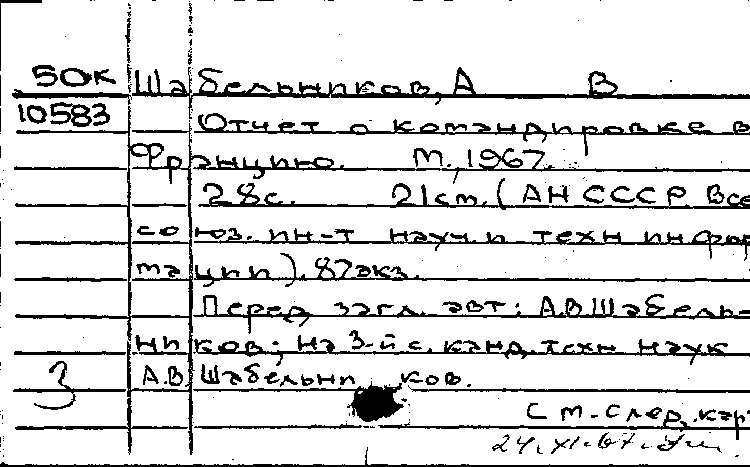 50К Шабельников, А В
10583 Отчет о командировке в
Францию. М., 1967.
28с. 21 cm. (АН СССР Все
союз. ин-т науч. и техн инфор
мации). 87экз.
Перед загл. авт: А.В.Шабель-
ников; на 3-й с. канд. техн наук
3 А.В. Шабельни ков.
См. след. кар
24.XI.67.